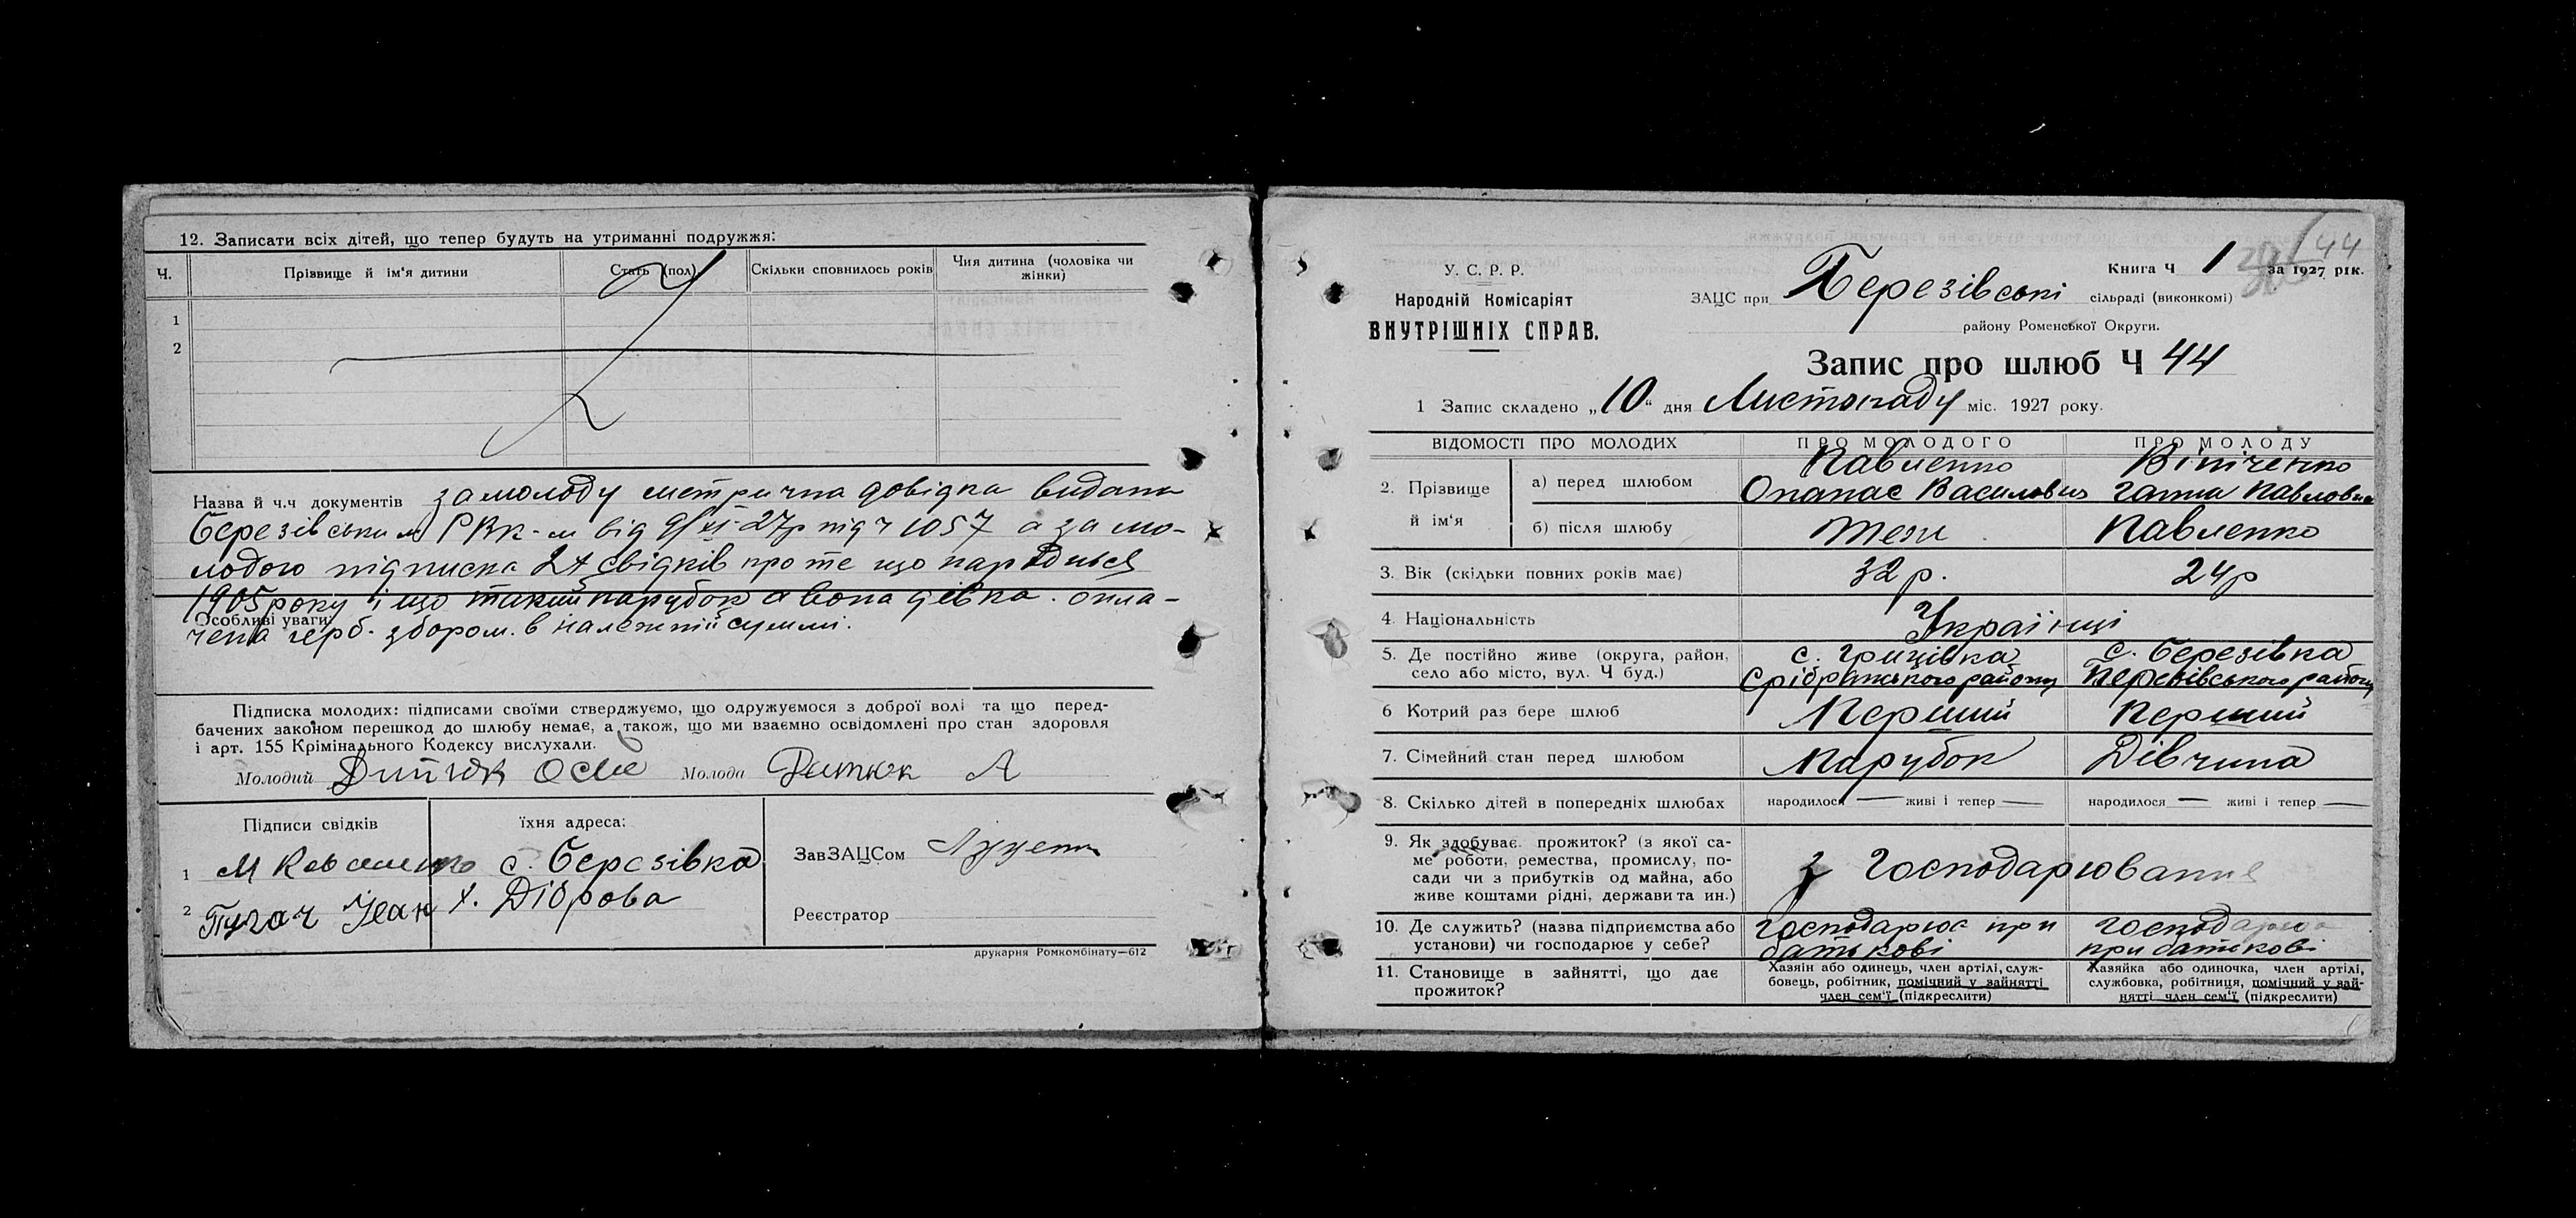 12. Записати всіх дітей, що тепер будуть на утриманні подружжя:
Ч. Прізвище й ім'я дитини Стать (пол) Скільки сповнилось років Чия дитина (чоловіка чи жінки)
1
2
Назва й ч.ч документів за молоду метрична довідка видана
Березівським РВК-м від 9/XI-27р під ч 1057 а за мо-
лодого підписка 2х свідків про те що народився
1905 року і що такий парубок а вона дівка. опла-
Особливі уваги:
чена герб. збором. в належній суммі.
Підписка молодих: підписами своїми стверджуємо, що одружуємося з доброї волі та що перед-
бачених законом перешкод до шлюбу немає, а також, що ми взаємно освідомлені про стан здоровля
і арт. 155 Крімінального Кодексу вислухали.
Молодий Молода А
Підписи свідків їхня адреса:
1 М с. Березівка ЗавЗАЦСом
2 Пугач Іван х. Діброва
Реєстратор
друкарня Ромкомбінату—612
У. С. Р. Р.
Народній Комісаріят
ВНУТРІШНІХ СПРАВ.
44
Книга Ч 1 за 1927 рік.
ЗАЦС при Березівські сільраді (виконкомі)
району Роменської Округи.
Запис про шлюб Ч 44
1 Запис складено „10" дня Листопаду міс. 1927 року.
ВІДОМОСТІ ПРО МОЛОДИХ ПРО МОЛОДОГО ПРО МОЛОДУ
2. Прізвище й ім'я а) перед шлюбом Павленко Опанас Василович Вініченко Ганна Павловна
б) після шлюбу теж Павленко
3. Вік (скільки повних років має) 32 р. 24 р
4. Національність Українці
5. Де постійно живе (округа, район, с. Гриціівка с. Березівка
село або місто, вул. Ч буд.) Срібрянського району району
6 Котрий раз бере шлюб Перший Перший
7. Сімейний стан перед шлюбом Парубок Дівчина
8. Скілько дітей в попередніх шлюбах народилося — живі і тепер — народилося — живі і тепер —
9. Як здобуває прожиток? (з якої са-
ме роботи, ремества, промислу, по-
сади чи з прибутків од майна, або
живе коштами рідні, держави та ин.)
з Господарювання
10. Де служить? (назва підприємства або Господарює при господарює
установи) чи господарює у себе? батькові при батькові
11. Становище в зайнятті, що дає прожиток?
Хазяїн або одинець, член артілі, служ-
бовець, робітник, помічний у зайнятті
член сем'ї (підкреслити)
Хазяйка або одиночка, член артілі,
службовка, робітниця, помічний у зай-
нятті член сем'ї (підкреслити)